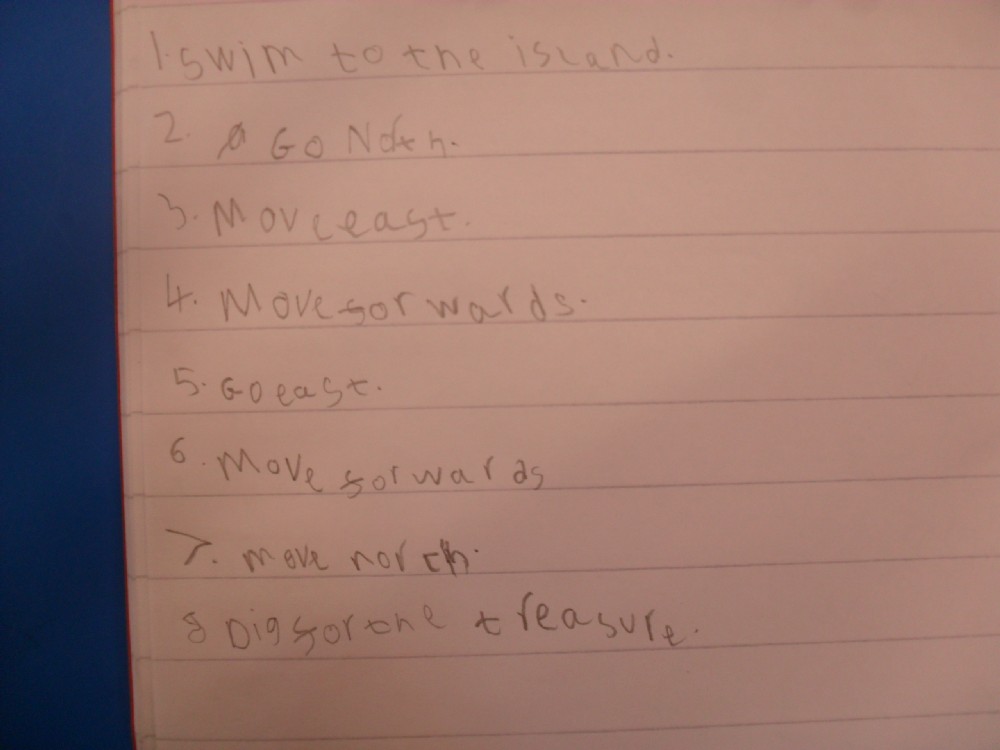 1. Swim to the island.
2. Go North.
3. Move east.
4. Move forwards.
5. Go east.
6. Move forwards
7. move north.
8 Dig for the treasure.